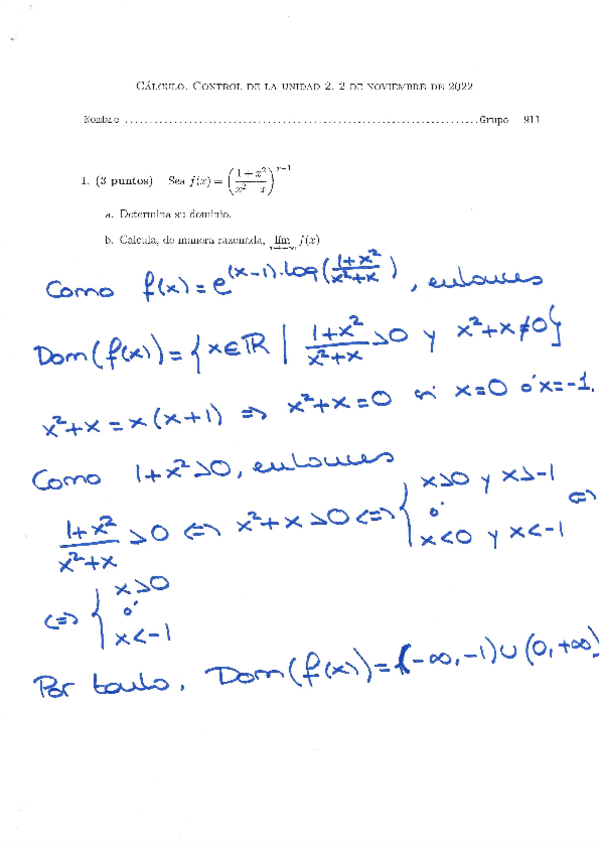 CÁLCULO. CONTROL DE LA UNIDAD 2. 2 DE NOVIEMBRE DE 2022
Nombre ........................................................................ Grupo 911
1. (3 puntos) Sea f(x) = ((1+x²)/(x² x))^(x−1)
a. Determina su dominio.
b. Calcula, de manera razonada, lím f(x)
Como f(x) = e^((x−1)·log((1+x²)/(x²+x))), entonces
Dom(f(x)) = {x∈ℝ | (1+x²)/(x²+x) > 0 y x²+x ≠ 0}
x²+x = x(x+1) ⇒ x²+x = 0 si x=0 ó x=-1.
Como 1+x²>0, entonces
(1+x²)/(x²+x) > 0 ⇔ x²+x > 0 ⇔ { x>0 y x>-1
ó
x<0 y x<-1 ⇔
⇔ { x>0
ó
x<-1
Por tanto, Dom(f(x)) = (-∞,-1)∪(0,+∞)